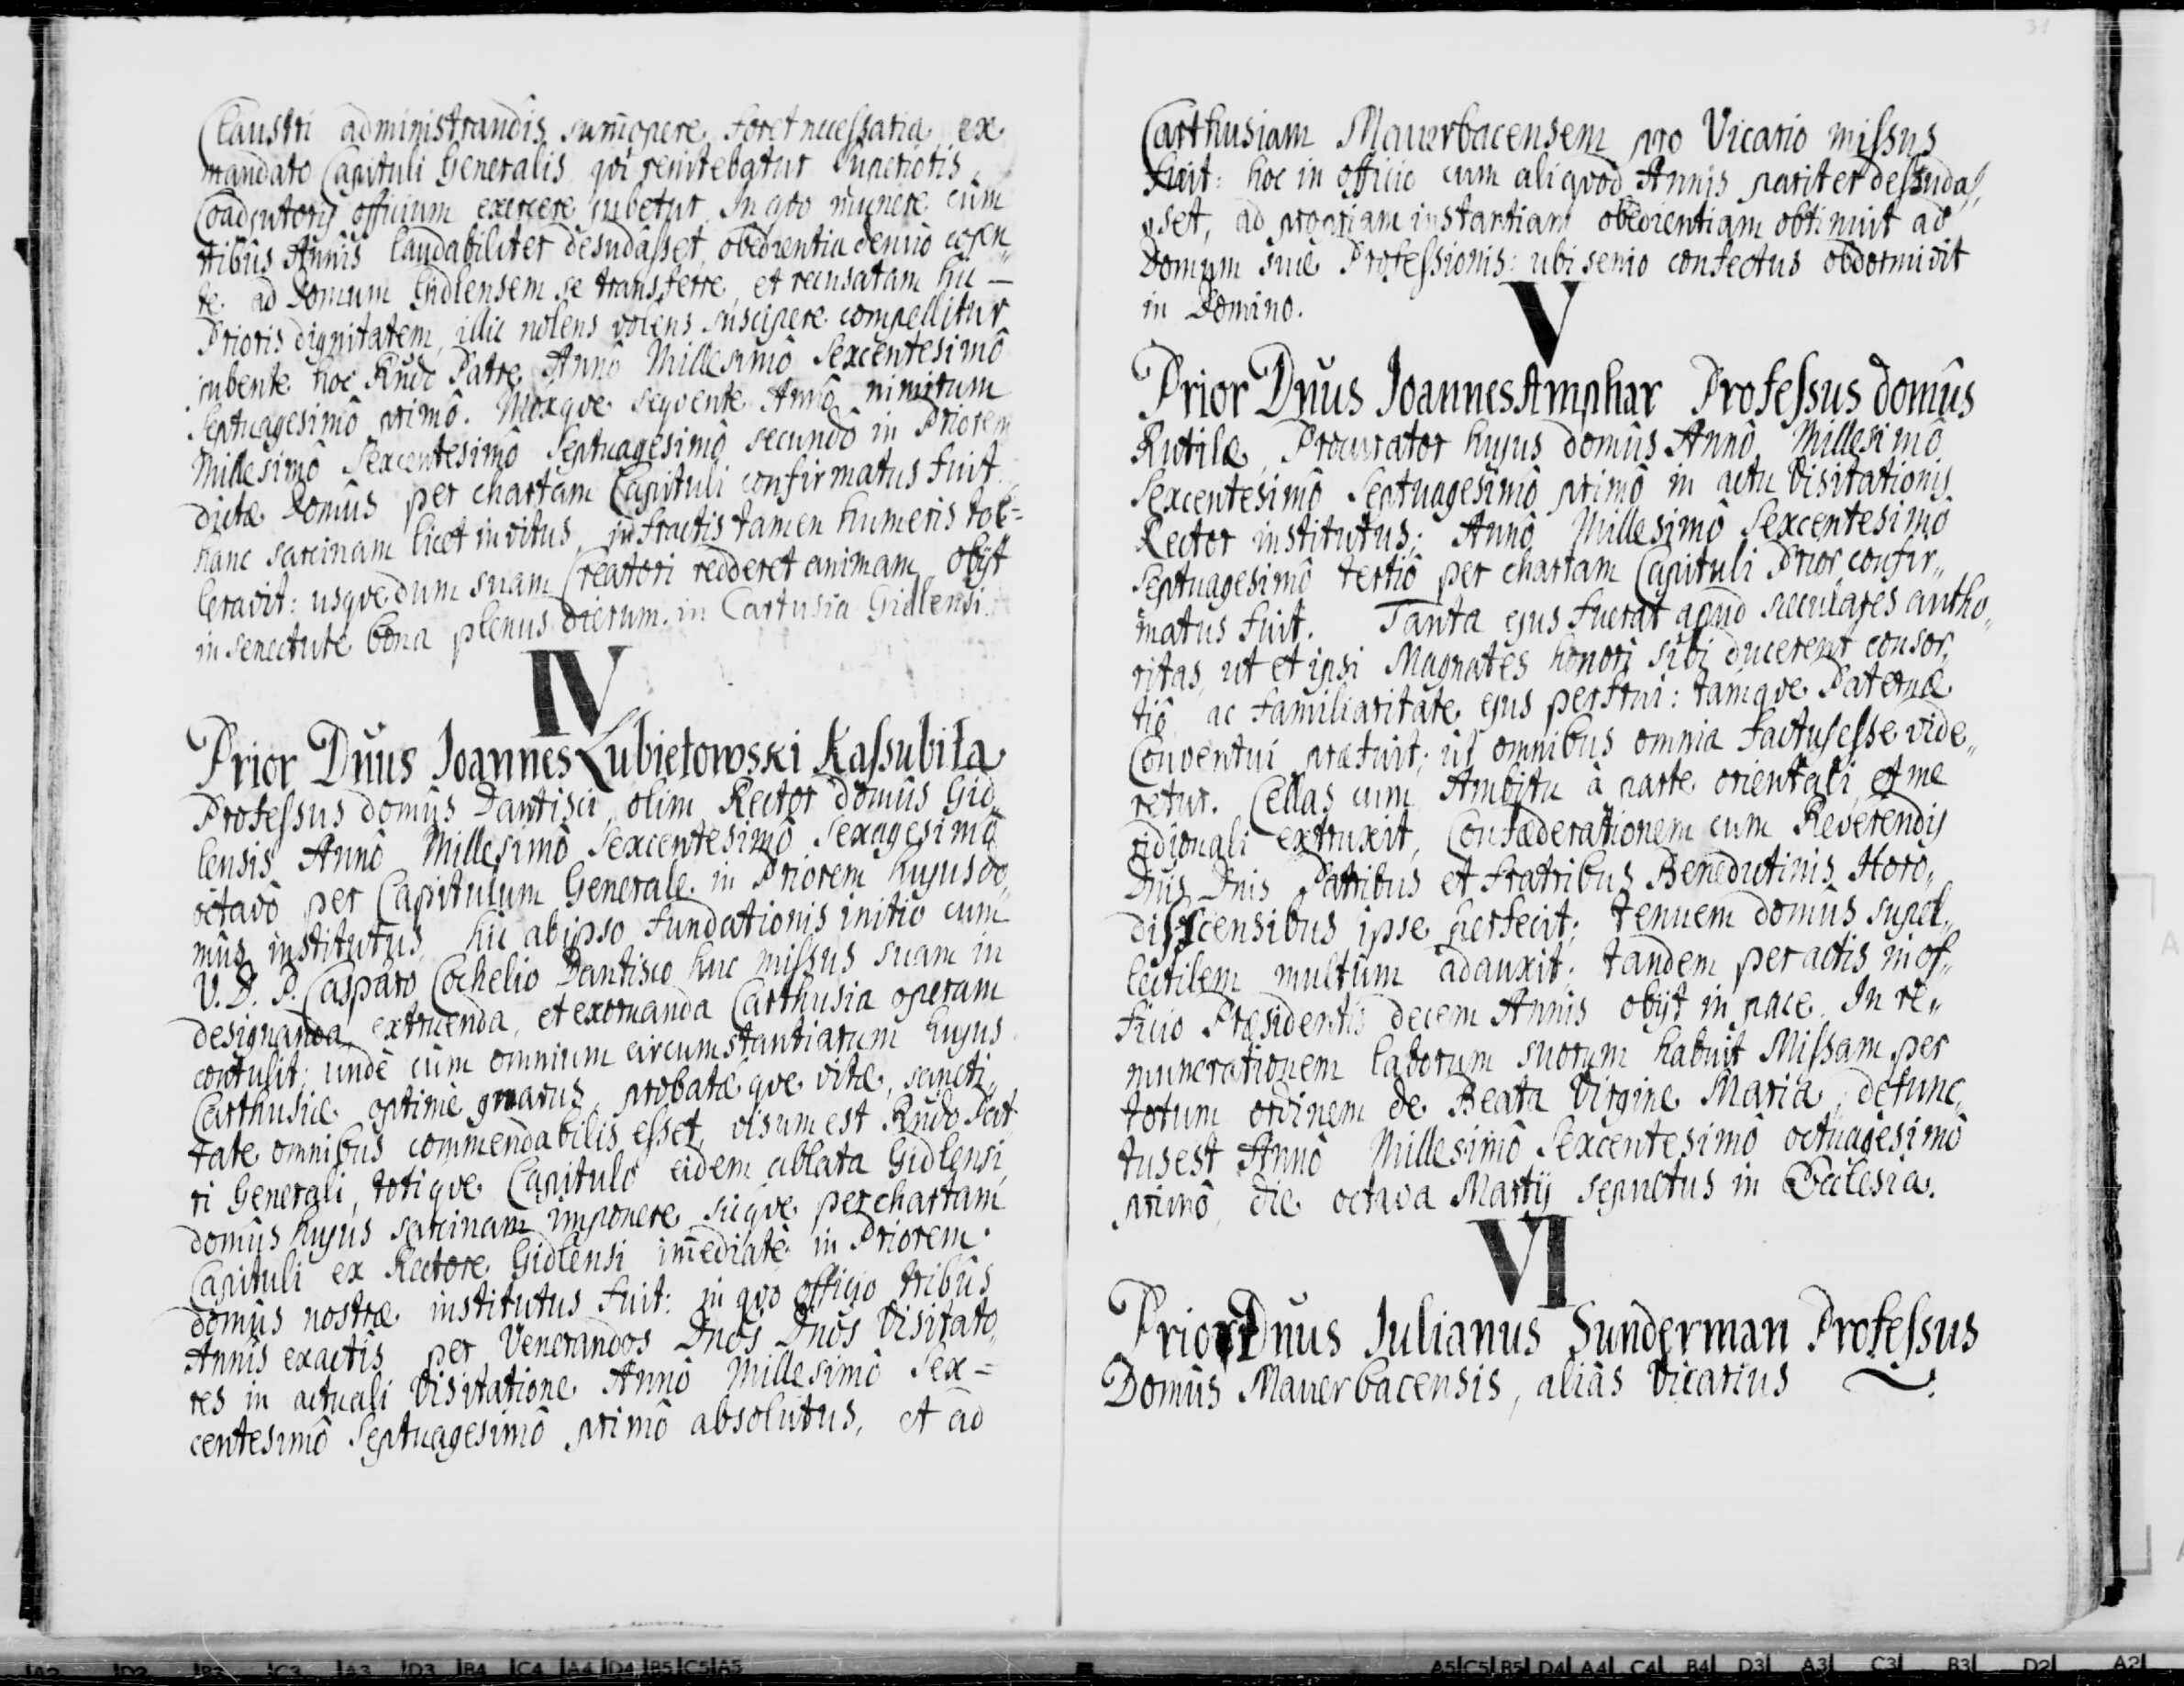 31
Claustri administrandis sum̄opere foret necessaria ex
mandato Capituli Generalis qvi renitebatur Superioris
Coadjutoris officium exercere jubetur. In qvo munere cum
tribûs Annis laudabiliter desudâsset, obedientia denuo cogen„
te ad Domum Gidlensem se transferre, et recusatam hic —
Prioris dignitatem, illic nolens volens suscipere compellitur
jubente hoc Rndo Patre Annô Millesimô Sexcentesimô
Septuagesimô primô. Moxqve seqvente Annô nimirum
Millesimô Sexcentesimô Septuagesimô secundô in Priorem
dictæ Domûs per chartam Capituli confirmatus fuit.
hanc sarcinam licet invitus, infractis tamen humeris tol=
leravit: usqvedum suam Creatori redderet animam. Obijt
in senectute bona plenus dierum. in Cartusia Gidlensi.
IV
Prior Dnus Joannes Lubietowski Kaſsubita
Profeſsus domûs Dantisci, olim Rector domûs Gid„
lensis Annô Millesimô Sexcentesimô Sexagesimô
octavô per Capitulum Generale in Priorem hujus do„
mûs institutus, hic ab ipso fundationis initio cum
V. D. P. Casparo Cochelio Dantisco huc miſsus suam in
designanda, extruenda, et exornanda Carthusia operam
contulit; unde cùm omnium circumstantiarum hujus
Carthusiæ optime gnarus, probatæqve vitæ, sancti„
tate omnibus commendabilis eſset, visum est Rndo Pat
ri Generali, totiqve Capitulo eidem ablata Gidlensi,
domûs hujus sarcinam imponere, sicqve per chartam
Capituli ex Rectore Gidlensi im̄ediatè in Priorem
domûs nostræ institutus fuit: in qvo officio tribûs
Annis exactis per Venerandos Dnos Dnos Visitato„
res in actuali Visitatione Annô Millesimô Sex=
centesimô Septuagesimô primô absolutus, et ad
Carthusiam Mauerbacensem pro Vicario miſsus
fuit: hoc in officio cum aliqvod Annis pariter desudas„
set, ad propriam instantiam obedientiam obtinuit ad
Domum suæ Profeſsionis: ubi senio confectus obdormivit
in Domino.
V
Prior Dnus Joannes Amphar Profeſsus domûs
Rutilæ, Procurator hujus domûs Annô Millesimô
Sexcentesimô Septuagesimô primô in actu Visitationis
Rector institutus; Annô Millesimô Sexcentesimô
Septuagesimô tertiô per chartam Capituli Prior confir„
matus fuit. Tanta ejus fuerat apud sæculares autho„
ritas, ut et ipsi Magnates honori sibi ducerent consor„
tiô ac familiaritate ejus perfrui: tamqve Paternæ
Conventui præfuit; ut omnibus omnia factus eſse vide„
retur. Cellas cum Ambitu à parte orientali, et me
ridionali extruxit, Confæderationem cum Reverendis
Dnis Dnis Patribus et Fratribus Benedictinis Horo„
discensibus ipse perfecit; tenuem domûs supel„
lectilem multùm adauxit; tandem peractis in of„
ficio Præsidentis decem Annis obijt in pace. In re„
munerationem laborum suorum habuit Miſsam per
totum ordinem de Beata Virgine Maria, defunc„
tus est Annô Millesimô Sexcentesimô octuagesimô
primô, die octava Martij sepultus in Ecclesia.
VI
Prior Dnus Julianus Sunderman Profeſsus
Domûs Mauerbacensis, aliàs Vicarius